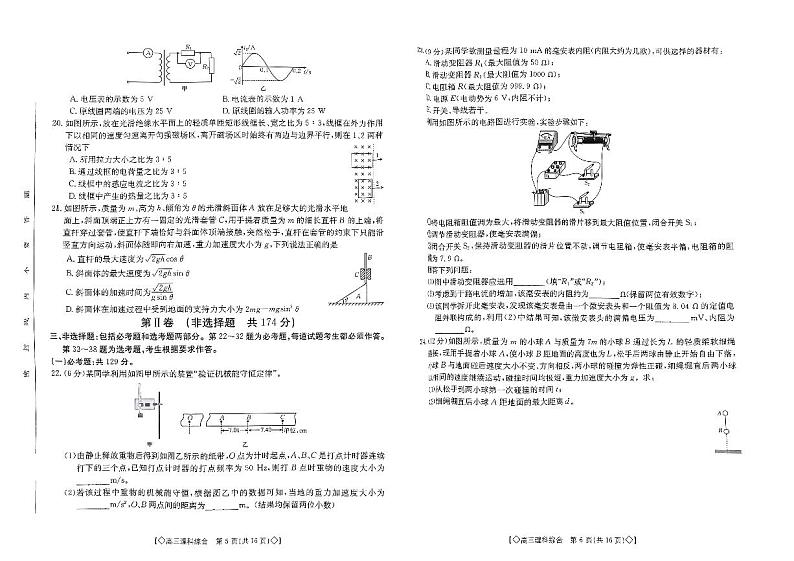 A. 电压表的示数为 5 V B. 电流表的示数为 1 A
C. 原线圈两端的电压为 25 V D. 原线圈的输入功率为 25 W
20. 如图所示，放在光滑绝缘水平面上的轻质单匝矩形线框长、宽之比为 5：3，线框在外力作用
下以相同的速度匀速离开匀强磁场区，离开磁场区时始终有两边与边界平行，则在 1、2 两种
情况下
A. 所用拉力大小之比为 3：5
B. 通过线框的电荷量之比为 3：5
C. 线框中的感应电流之比为 3：5
D. 线框中产生的热量之比为 3：5
21. 如图所示，质量为 m、高为 h、倾角为 θ 的光滑斜面体 A 放在足够大的光滑水平地
面上，斜面顶端正上方有一固定的光滑套管 C，用手提着质量为 m 的细长直杆 B 的上端，将
直杆穿过套管，使直杆下端恰好与斜面体顶端接触，突然松手，直杆在套管的约束下只能沿
竖直方向运动，斜面体随即向右加速，重力加速度大小为 g，下列说法正确的是
A. 直杆的最大速度为 √2gh cos θ
B. 斜面体的最大速度为 √2gh sin θ
C. 斜面体的加速时间为 √2gh / g sin θ
D. 斜面体在加速过程中受到地面的支持力大小为 2mg－mgsin² θ
第Ⅱ卷 (非选择题 共 174 分)
三、非选择题：包括必考题和选考题两部分。第 22～32 题为必考题，每道试题考生都必须作答。
第 33～38 题为选考题，考生根据要求作答。
(一)必考题：共 129 分。
22. (6 分)某同学利用如图甲所示的装置“验证机械能守恒定律”。
O A B C
7.01 7.40 单位:cm
甲 乙
(1)由静止释放重物后得到如图乙所示的纸带，O 点为计时起点，A、B、C 是打点计时器连续
打下的三个点，已知打点计时器的打点频率为 50 Hz，则打 B 点时重物的速度大小为
________m/s。
(2)若该过程中重物的机械能守恒，根据图乙中的数据可知，当地的重力加速度大小为
________m/s²，O、B 两点间的距离为________m。(结果均保留两位小数)
◇高三理科综合 第 5 页(共 16 页)◇
23. (9 分)某同学欲测量量程为 10 mA 的毫安表内阻(内阻大约为几欧)，可供选择的器材有：
A. 滑动变阻器 R₁(最大阻值为 50 Ω)；
B. 滑动变阻器 R₂(最大阻值为 1000 Ω)；
C. 电阻箱 R(最大阻值为 999.9 Ω)；
D. 电源 E(电动势为 6 V，内阻不计)；
E. 开关、导线若干。
用如图所示的电路图进行实验，实验步骤如下：
S₂
S₁
将电阻箱阻值调为最大，将滑动变阻器的滑片移到最大阻值位置，闭合开关 S₁；
调节滑动变阻器，使毫安表满偏；
闭合开关 S₂，保持滑动变阻器的滑片位置不动，调节电阻箱，使毫安表半偏，电阻箱的阻
为 7.9 Ω。
答下列问题：
(1)图中滑动变阻器应选用________(填“R₁”或“R₂”)；
(2)考虑到干路电流的增加，该毫安表的内阻约为________Ω(保留两位有效数字)；
(3)该同学拆开此毫安表，发现该毫安表是由一个微安表和一个阻值为 8.04 Ω 的定值电
阻并联构成的，利用(2)中结果可知，该微安表头的满偏电压为________mV、内阻为
________Ω。
24. (12 分)如图所示，质量为 m 的小球 A 与质量为 7m 的小球 B 通过长为 L 的轻质柔软细绳
连接，现用手提着小球 A，使小球 B 距地面的高度也为 L，松手后两球由静止开始自由下落，
球 B 与地面碰后速度大小不变、方向相反，两小球的碰撞为弹性正碰，细绳绷直后两小球
以相同的速度继续运动，碰撞时间均极短，重力加速度大小为 g，求：
(1)从松手到两小球第一次碰撞的时间 t；
(2)细绳绷直后小球 A 距地面的最大距离 d。
A
B
◇高三理科综合 第 6 页(共 16 页)◇